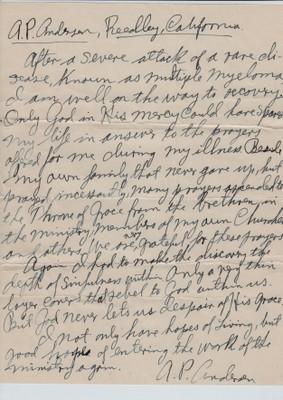 A.P. Andersen, Reedley, California
After a severe attack of a rare di-
sease, known as multiple myeloma
I am well on the way to recovery.
Only God in His mercy could have spared
my life in answer to the prayers
offered for me during my illness. Besides
my own family that never gave up, but
prayed incessantly, many prayers ascended to
the Throne of Grace from the brethren in
the ministry, members of my own Churches
and others. We are very grateful for these prayers
Again I had to make the discovery the
depth of sinfulness within. Only a very thin
layer covers that rebel to God within us.
But God never lets us despair of His Grace.
I not only have hopes of living, but
good hopes of entering the work of the
ministry again.
A.P. Andersen